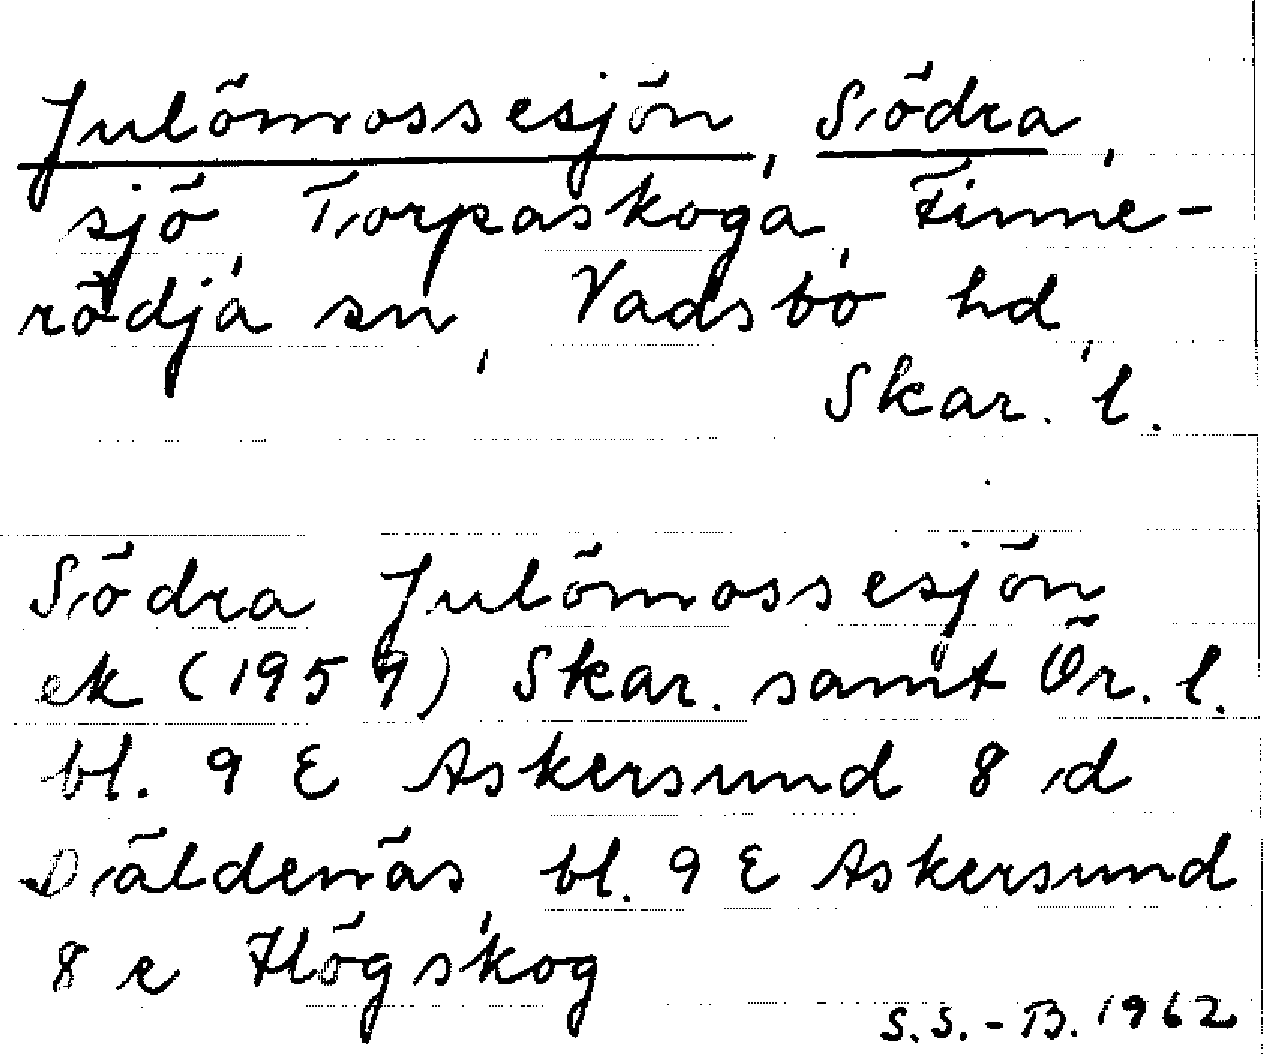 Julömossesjön, Södra,
sjö, Torpaskoga, Finne-
rödja sn, Vadsbo hd,
Skar. l.
Södra Julömossesjön
ek (1959) Skar. samt Ör. l.
bl. 9 E Askersund 8 d
Däldenäs, bl. 9 E Askersund
8 e Högskog
S.S.-B. 1962